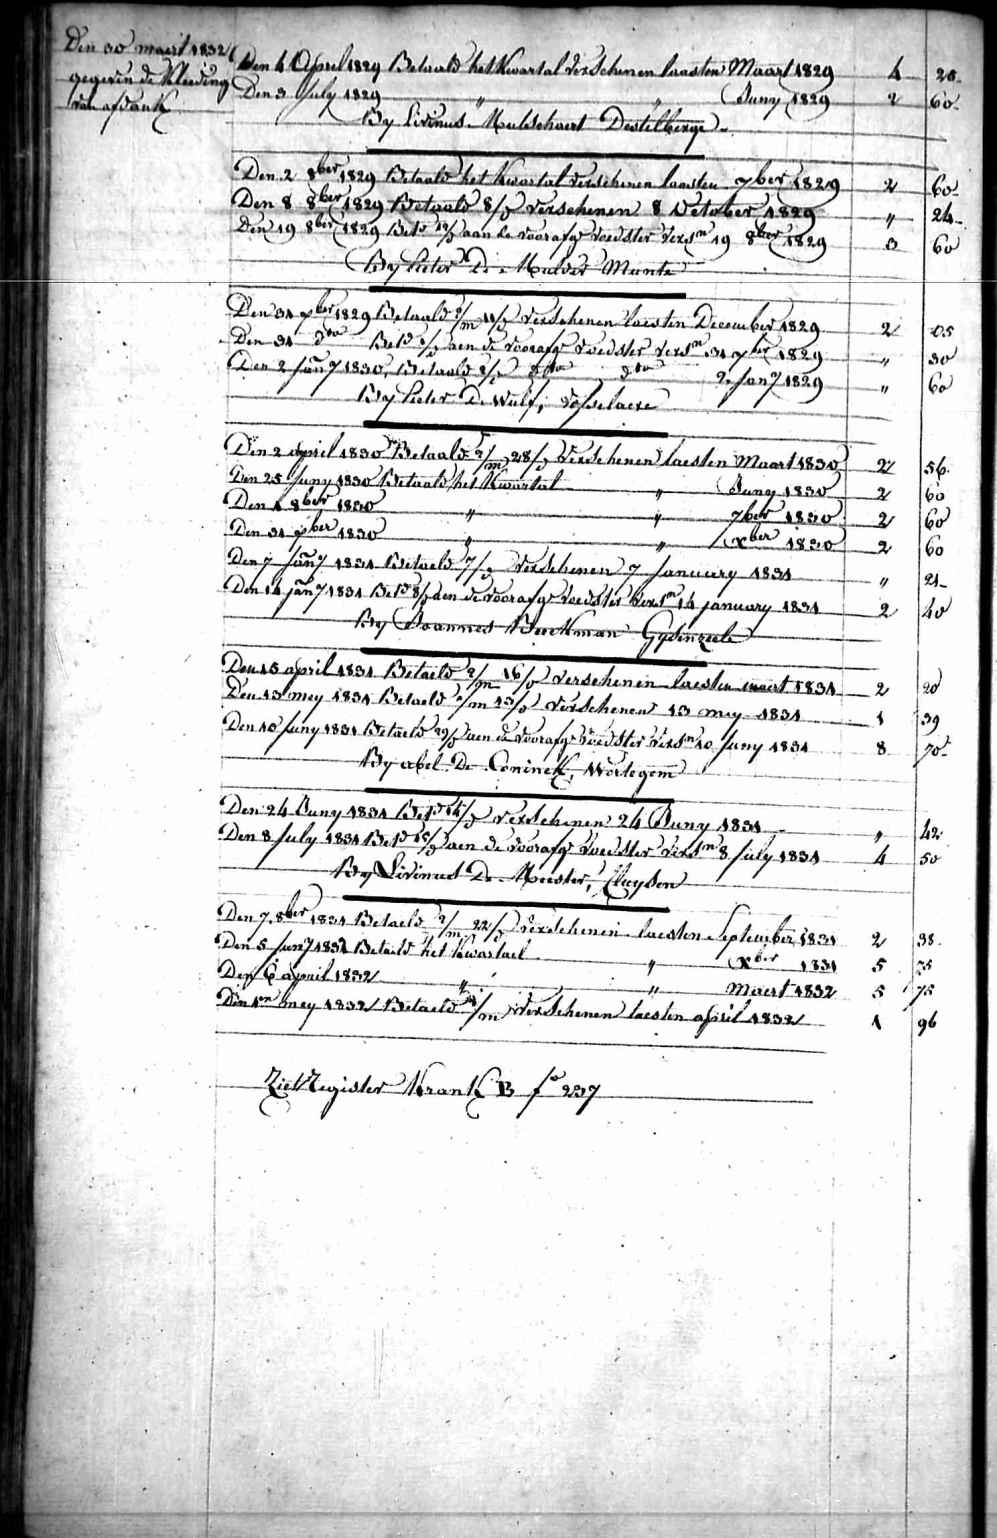 Den 30 maert 1832
gegeven de Kleeding
van afdank
Den 4 April 1829 Betaald het Kwartal verschenen laasten Maart 1829 4 20
Den 3 July 1829 " " Juny 1829 2 60
By Livinus Mulschaert Destelberge
Den 2 8ber 1829 Betaald het Kwartal verschenen laasten 7ber 1829 2 60
Den 8 8ber 1829 Betaald 8/d verschenen 8 October 1829 " 24
Den 19 8ber 1829 Bet° 12/d aan de voorafg voedster vers^n 19 8ber 1829 3 60
By Pieter De Mulder Munte
Den 31 xber 1829 Betaald 2/m 11/d verschenen laesten December 1829 2 05
Den 31 d^to Bet^d /d aen de voorafg voedster vers^n 31 xber 1829 " 30
Den 2 Jan^y 1830, Betaald 2/d d^to d^to 2 Jan^y 1829 " 60
By Pieter De Wulf, Vosselaere
Den 2 April 1830 Betaald 2/m 28/d verschenen laesten Maart 1830 2 56
Den 25 Juny 1830 Betaald het Kwartal " Juny 1830 2 60
Den 1 8ber 1830 " " 7ber 1830 2 60
Den 31 xber 1830 " " xber 1830 2 60
Den 7 Jan^y 1831 Betaeld 7/d verschenen 7 January 1831 " 21
Den 14 jan^y 1831 Bet^d 8/d den de voorafg voedster vers^n 14 january 1831 2 40
By Joannes Beeckman Gysenzeele
Den 15 april 1831 Betaeld 2/m 16/d verschenen laesten maert 1831 2 20
Den 13 mey 1831 Betaeld 1/m 13/d verschenen 13 mey 1831 1 39
Den 10 Juny 1831 Betaeld 29/d aen de voorafg voedster vers^n 10 Juny 1831 8 70
By abel De Coninck, Wortegem
Den 24 Juny 1831 Bet^d 14/d verschenen 24 Juny 1831 " 42
Den 8 July 1831 Bet^d 15/d aen de voorafg voedster vers^n 8 july 1831 4 50
By Livinus De Meester, Cluysen
Den 7 8ber 1831 Betaeld 2/m 22/d verschenen laesten September 1831 2 38
Den 5 Jan^y 1832 Betaeld het Kwartael " xber 1831 5 75
Den 6 april 1832 " " Maert 1832 5 75
Den 1^en mey 1832 Betaeld 1/m verschenen laesten april 1832 1 96
Ziet Register Krank B f° 237